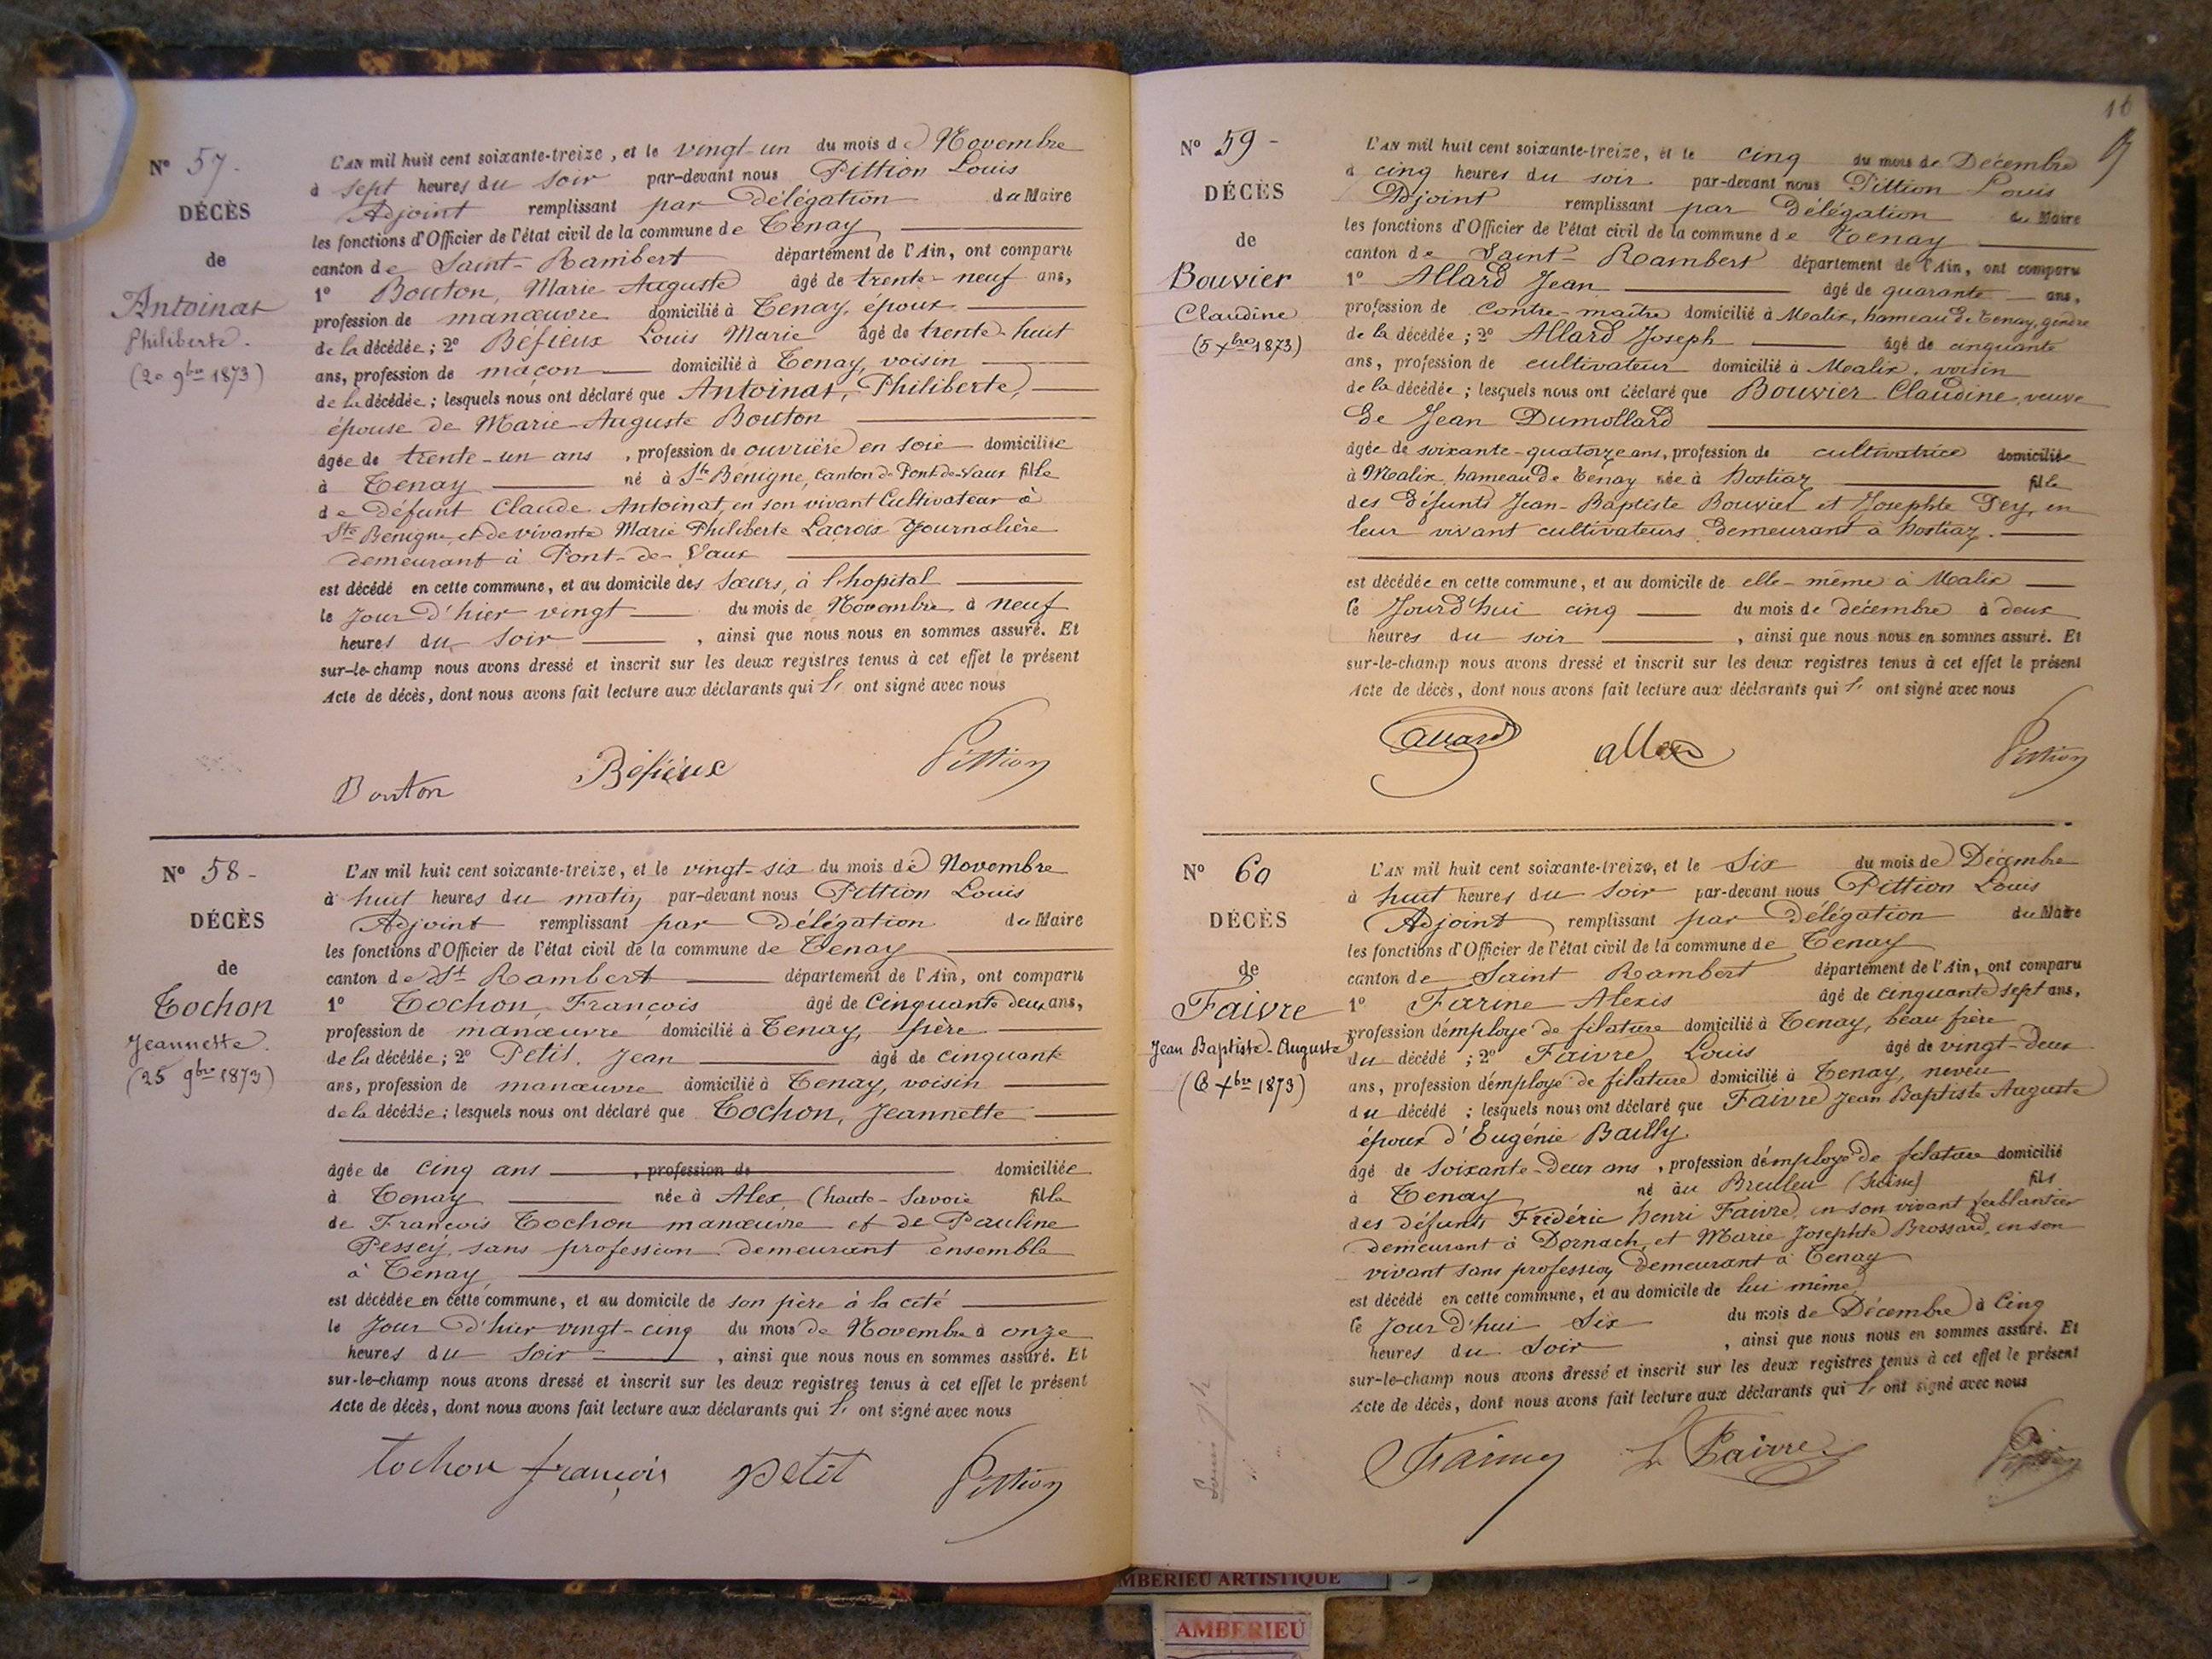 Nº 57.
DÉCÈS
de
Antoinat
Philiberte.
(20 9bre 1873)
L'AN mil huit cent soixante-treize, et le vingt-un du mois de Novembre
à sept heures du soir par-devant nous Pittion Louis
Adjoint remplissant par délégation du Maire
les fonctions d'Officier de l'état civil de la commune de Tenay
canton de Saint-Rambert département de l'Ain, ont comparu
1º Bouton, Marie Auguste âgé de trente-neuf ans,
profession de manœuvre domicilié à Tenay, époux
de la décédée; 2º Béfieux Louis Marie âgé de trente-huit
ans, profession de maçon domicilié à Tenay, voisin
de la décédée; lesquels nous ont déclaré que Antoinat, Philiberte,
épouse de Marie-Auguste Bouton
âgée de trente-un ans, profession de ouvrière en soie domiciliée
à Tenay né à Ste Bénigne, canton de Pont-de-Vaux fille
de défunt Claude Antoinat, en son vivant Cultivateur à
Ste Bénigne, et de vivante Marie Philiberte Lacroix Journalière
demeurant à Pont-de-Vaux
est décédé en cette commune, et au domicile des sœurs, à l'hopital
le jour d'hier vingt du mois de Novembre à neuf
heures du soir, ainsi que nous nous en sommes assuré. Et
sur-le-champ nous avons dressé et inscrit sur les deux registres tenus à cet effet le présent
Acte de décès, dont nous avons fait lecture aux déclarants qui l' ont signé avec nous
Bouton Béfieux Pittion
Nº 58-
DÉCÈS
de
Tochon
Jeannette.
(25 9bre 1873)
L'AN mil huit cent soixante-treize, et le vingt-six du mois de Novembre
à huit heures du matin par-devant nous Pittion Louis
Adjoint remplissant par délégation du Maire
les fonctions d'Officier de l'état civil de la commune de Tenay
canton de St Rambert département de l'Ain, ont comparu
1º Tochon, François âgé de cinquante deux ans,
profession de manœuvre domicilié à Tenay, père
de la décédée; 2º Petit, Jean âgé de cinquante
ans, profession de manœuvre domicilié à Tenay, voisin
de la décédée; lesquels nous ont déclaré que Tochon, Jeannette
âgée de cinq ans, profession de domiciliée
à Tenay née à Alex, (haute-Savoie fille
de François Tochon manœuvre et de Pauline
Pessey, sans profession demeurant ensemble
à Tenay
est décédée en cette commune, et au domicile de son père à la cité
le Jour d'hier vingt-cinq du mois de Novembre à onze
heures du soir, ainsi que nous nous en sommes assuré. Et
sur-le-champ nous avons dressé et inscrit sur les deux registres tenus à cet effet le présent
Acte de décès, dont nous avons fait lecture aux déclarants qui l' ont signé avec nous
tochon françois petit Pittion
16
Nº 59-
DÉCÈS
de
Bouvier
Claudine
(5 Xbre 1873)
L'AN mil huit cent soixante-treize, et le cinq du mois de Décembre
à cinq heures du soir par-devant nous Pittion Louis
Adjoint remplissant par délégation du Maire
les fonctions d'Officier de l'état civil de la commune de Tenay
canton de Saint-Rambert département de l'Ain, ont comparu
1º Allard Jean âgé de quarante ans,
profession de contre-maître domicilié à Malix, hameau de Tenay, gendre
de la décédée; 2º Allard Joseph âgé de cinquante
ans, profession de cultivateur domicilié à Malix, voisin
de la décédée; lesquels nous ont déclaré que Bouvier Claudine, veuve
de Jean Dumollard
âgée de soixante-quatorze ans, profession de cultivatrice domiciliée
à Malix, hameau de Tenay née à hostiaz fille
des défunts Jean-Baptiste Bouvier et Josephte Pey, en
leur vivant cultivateurs demeurant à hostiaz.
est décédée en cette commune, et au domicile de elle-même à Malix
le Jourd'hui cinq du mois de décembre à deux
heures du soir, ainsi que nous nous en sommes assuré. Et
sur-le-champ nous avons dressé et inscrit sur les deux registres tenus à cet effet le présent
Acte de décès, dont nous avons fait lecture aux déclarants qui l' ont signé avec nous
allard Pittion
Nº 60
DÉCÈS
de
Faivre
Jean Baptiste-Auguste
(6 Xbre 1873)
L'AN mil huit cent soixante-treize, et le Six du mois de Décembre
à huit heures du soir par-devant nous Pittion Louis
Adjoint remplissant par délégation du Maire
les fonctions d'Officier de l'état civil de la commune de Tenay
canton de Saint Rambert département de l'Ain, ont comparu
1º Farine Alexis âgé de cinquante sept ans,
profession d'employé de filature domicilié à Tenay, beau frère
du décédé; 2º Faivre Louis âgé de vingt-deux
ans, profession d'employé de filature domicilié à Tenay, neveu
du décédé; lesquels nous ont déclaré que Faivre Jean Baptiste Auguste
époux d'Eugénie Bailly
âgé de soixante-deux ans, profession d'employé de filature domicilié
à Tenay né au Breuleu (Suisse) fils
des défunts Frédéric henri Faivre, en son vivant ferblantier
demeurant à Dornach, et Marie Josephte Brossard, en son
vivant sans profession demeurant à Tenay
est décédé en cette commune, et au domicile de lui même
le Jour d'hui Six du mois de Décembre à cinq
heures du soir, ainsi que nous nous en sommes assuré. Et
sur-le-champ nous avons dressé et inscrit sur les deux registres tenus à cet effet le présent
Acte de décès, dont nous avons fait lecture aux déclarants qui l' ont signé avec nous
L Faivre
AMBERIEU ARTISTIQUE
AMBERIEU